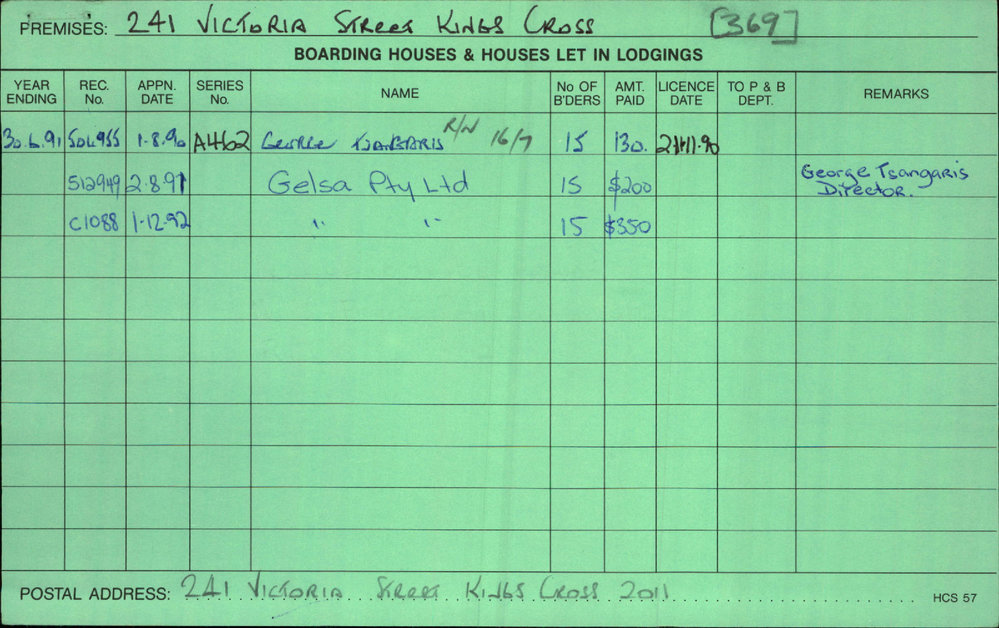 PREMISES: 241 VICTORIA STREET KINGS CROSS [369]
BOARDING HOUSES & HOUSES LET IN LODGINGS
YEAR ENDING REC. No. APPN. DATE SERIES No. NAME No OF B'DERS AMT. PAID LICENCE DATE TO P & B DEPT. REMARKS
30.6.91 504955 1-8.90 A4462 GEORGE TSANGARIS R/N 16/7 15 130. 21.11.90
512949 2-8.91 Gelsa Pty Ltd 15 $200 George Tsangaris Director.
C1088 1-12-92 " " 15 $350
POSTAL ADDRESS: 241 VICTORIA STREET KINGS CROSS 2011 HCS 57